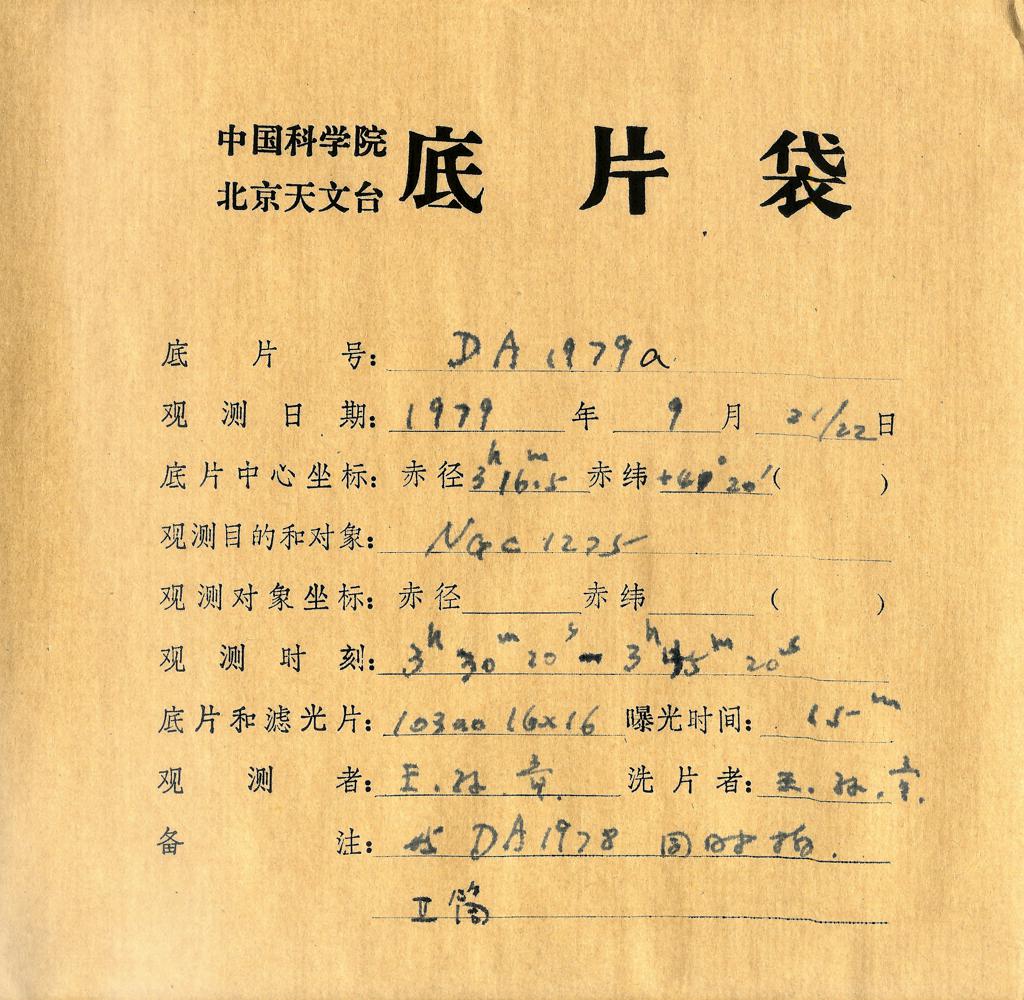 中国科学院
北京天文台
底片袋
底片号: DA 1979a
观测日期: 1979年 9月 21/22日
底片中心坐标: 赤径 3h16m.5 赤纬 +41°20′ ( )
观测目的和对象: NGC 1275
观测对象坐标: 赤径 赤纬 ( )
观测时刻: 3h30m20s - 3h45m20s
底片和滤光片: 103aO 16x16 曝光时间: 15m
观测者: 王.孙.京. 洗片者: 王.孙.京.
备注: 与 DA1978 同时拍.
II筒